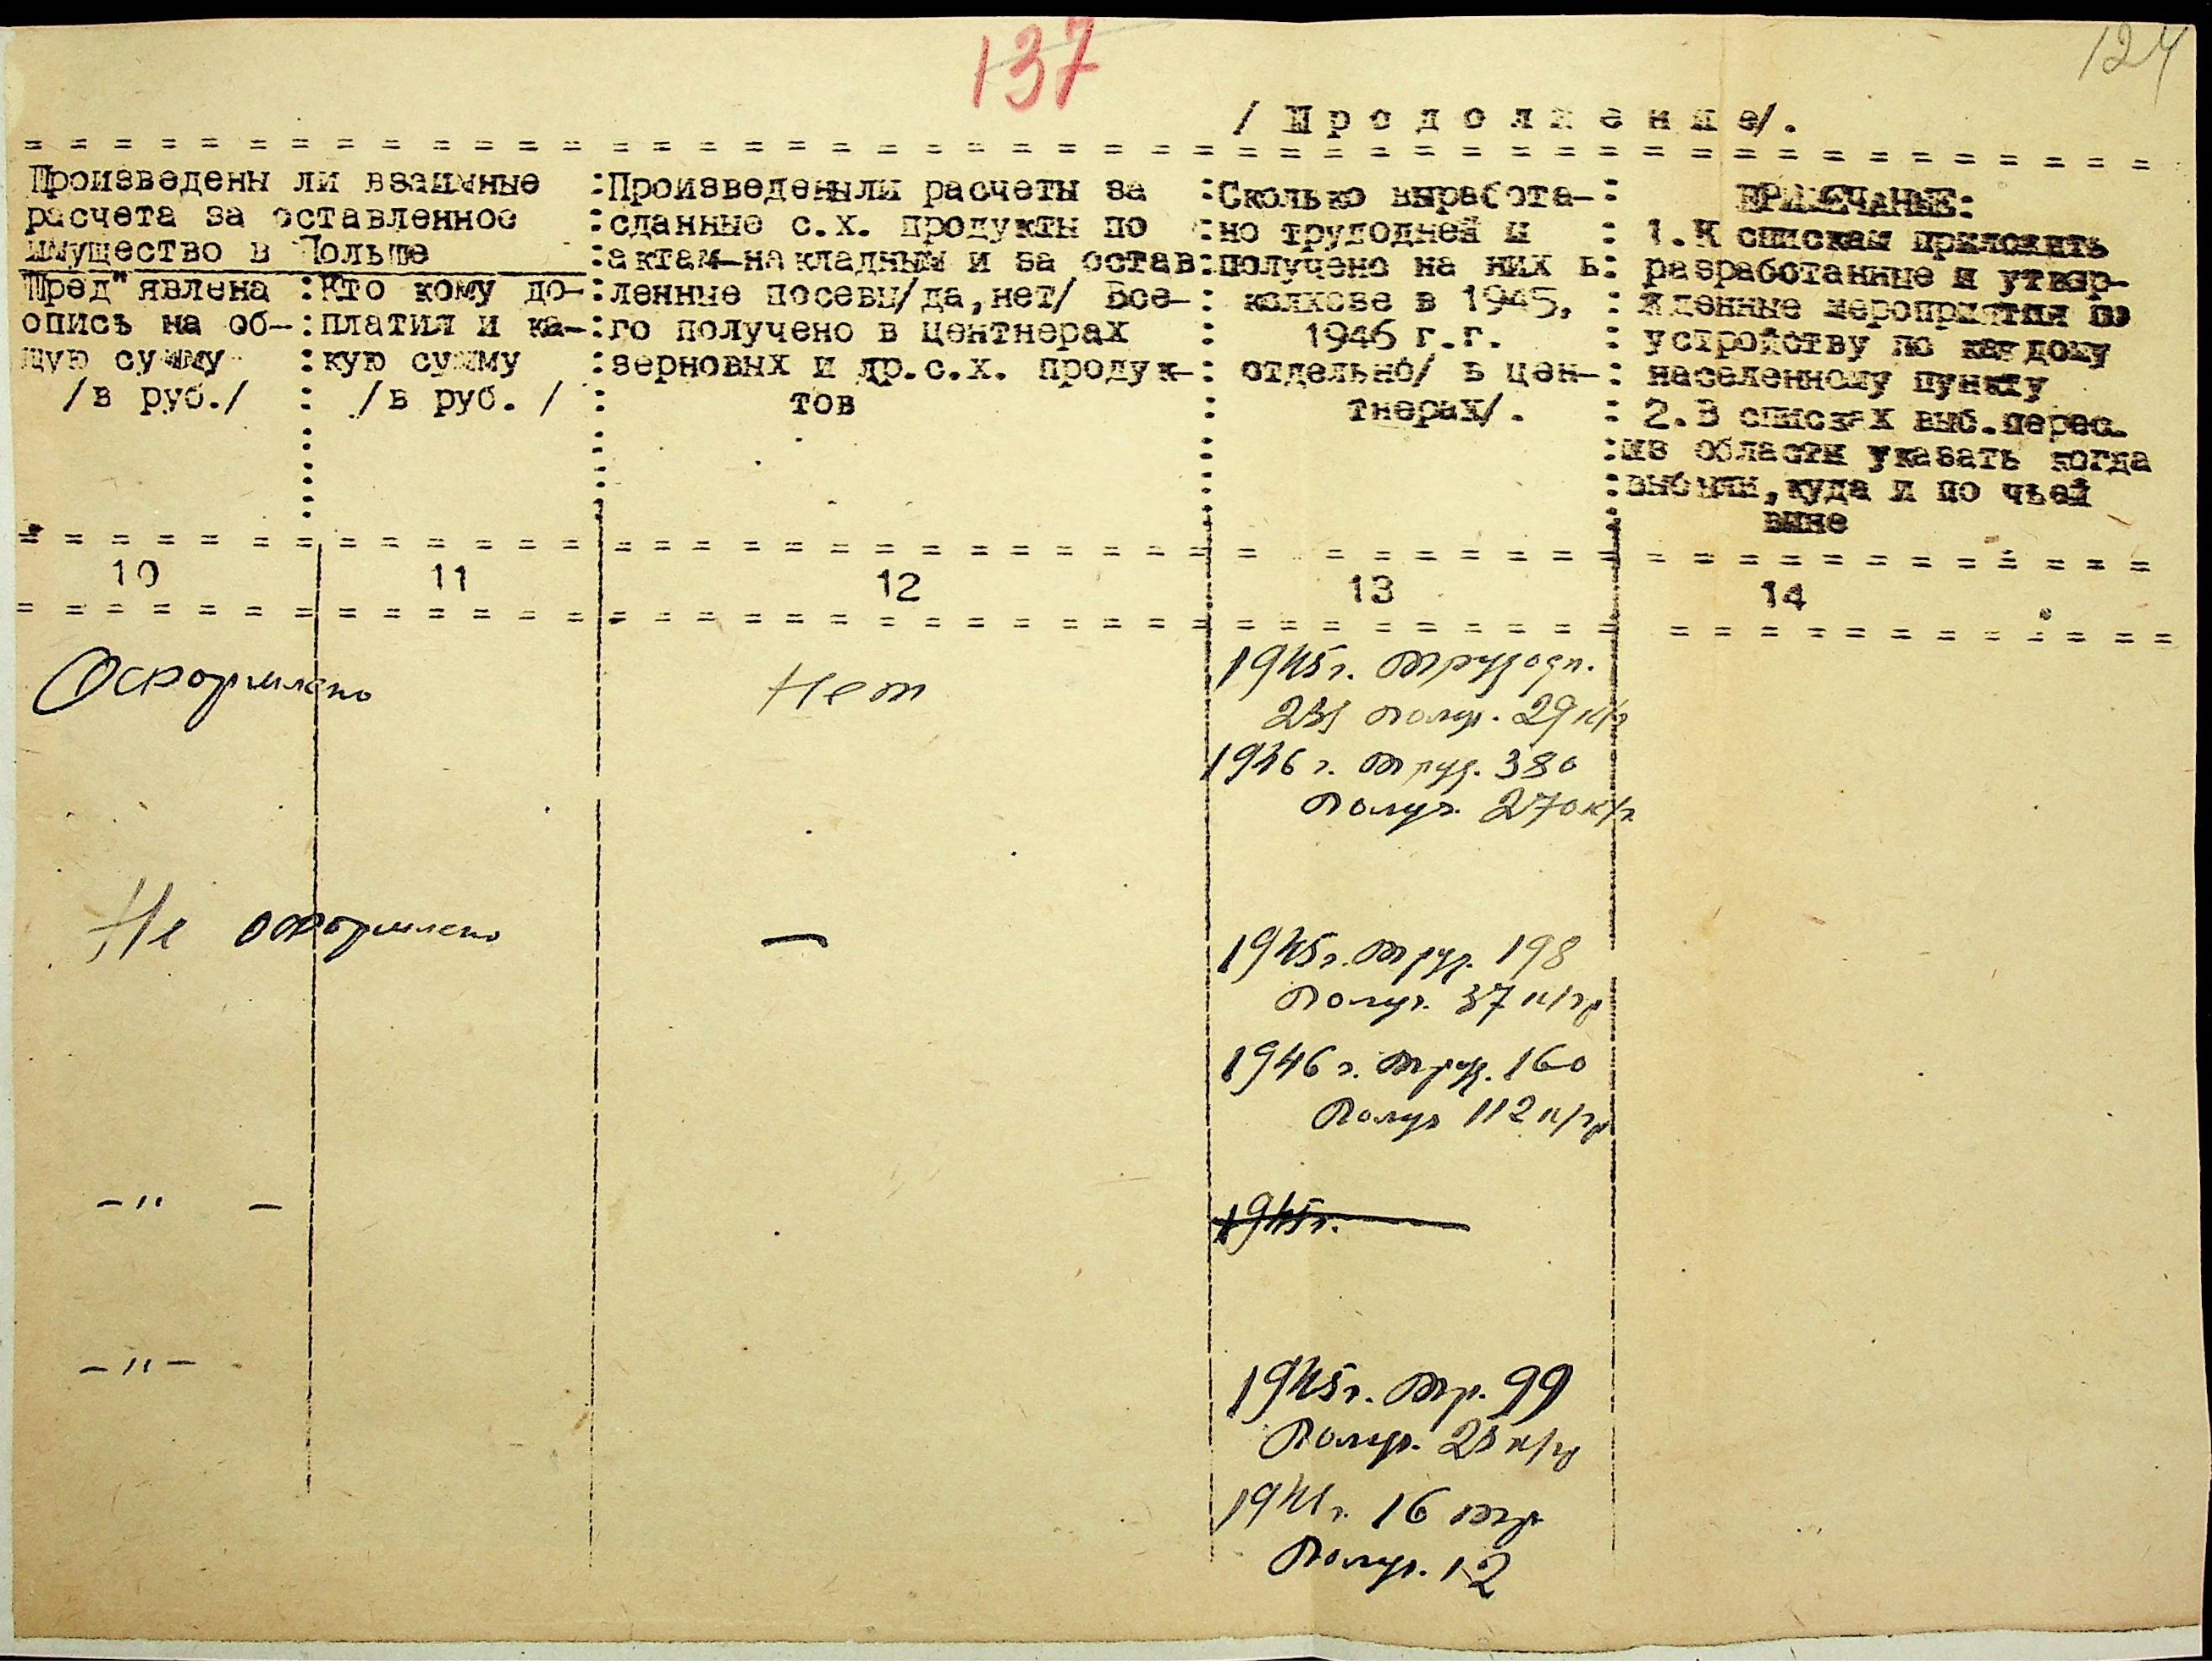 137
124
/ П р о д о л ж е н и е/.
Произведены ли взаимные
расчета за оставленное
имущество в Польше
Пред"явлена : Кто кому до-
опись на об- : платил и ка-
щую сумму : кую сумму
/в руб./ : /в руб. /
:Произведены ли расчеты за
:сданные с.х. продукты по
:актам-накладным и за остав
:ленные посевы/да,нет/ Все-
:го получено в центнерах
:зерновых и др.с.х. продук-
тов
:Сколько выработа-:
:но трудодней и :
:получено на них в:
: колхозе в 1945, :
: 1946 г.г. :
: отдельно/ в цен-:
: тнерах/. :
ПРИМЕЧАНИЕ:
1.К спискам приложить
разработанные и утвер-
жденные мероприятия по
устройству по каждому
населенному пункту
2.В списках выб.перес.
:из области указать когда
:выбыли,куда и по чьей
вине
10 11 12 13 14
Оформлено
Нет
1945г. трудодн.
получ. 29 к/г
1946 г. труд. 380
Получ. 270 к/г
Не оформлено
—
1945г. труд. 198
Получ. 37 к/гр
1946 г. труд. 160
Получ 112 к/гр
-"-
1945г.
-"-
1945г. тр. 99
Получ. к/гр
16 тр
Получ. 12